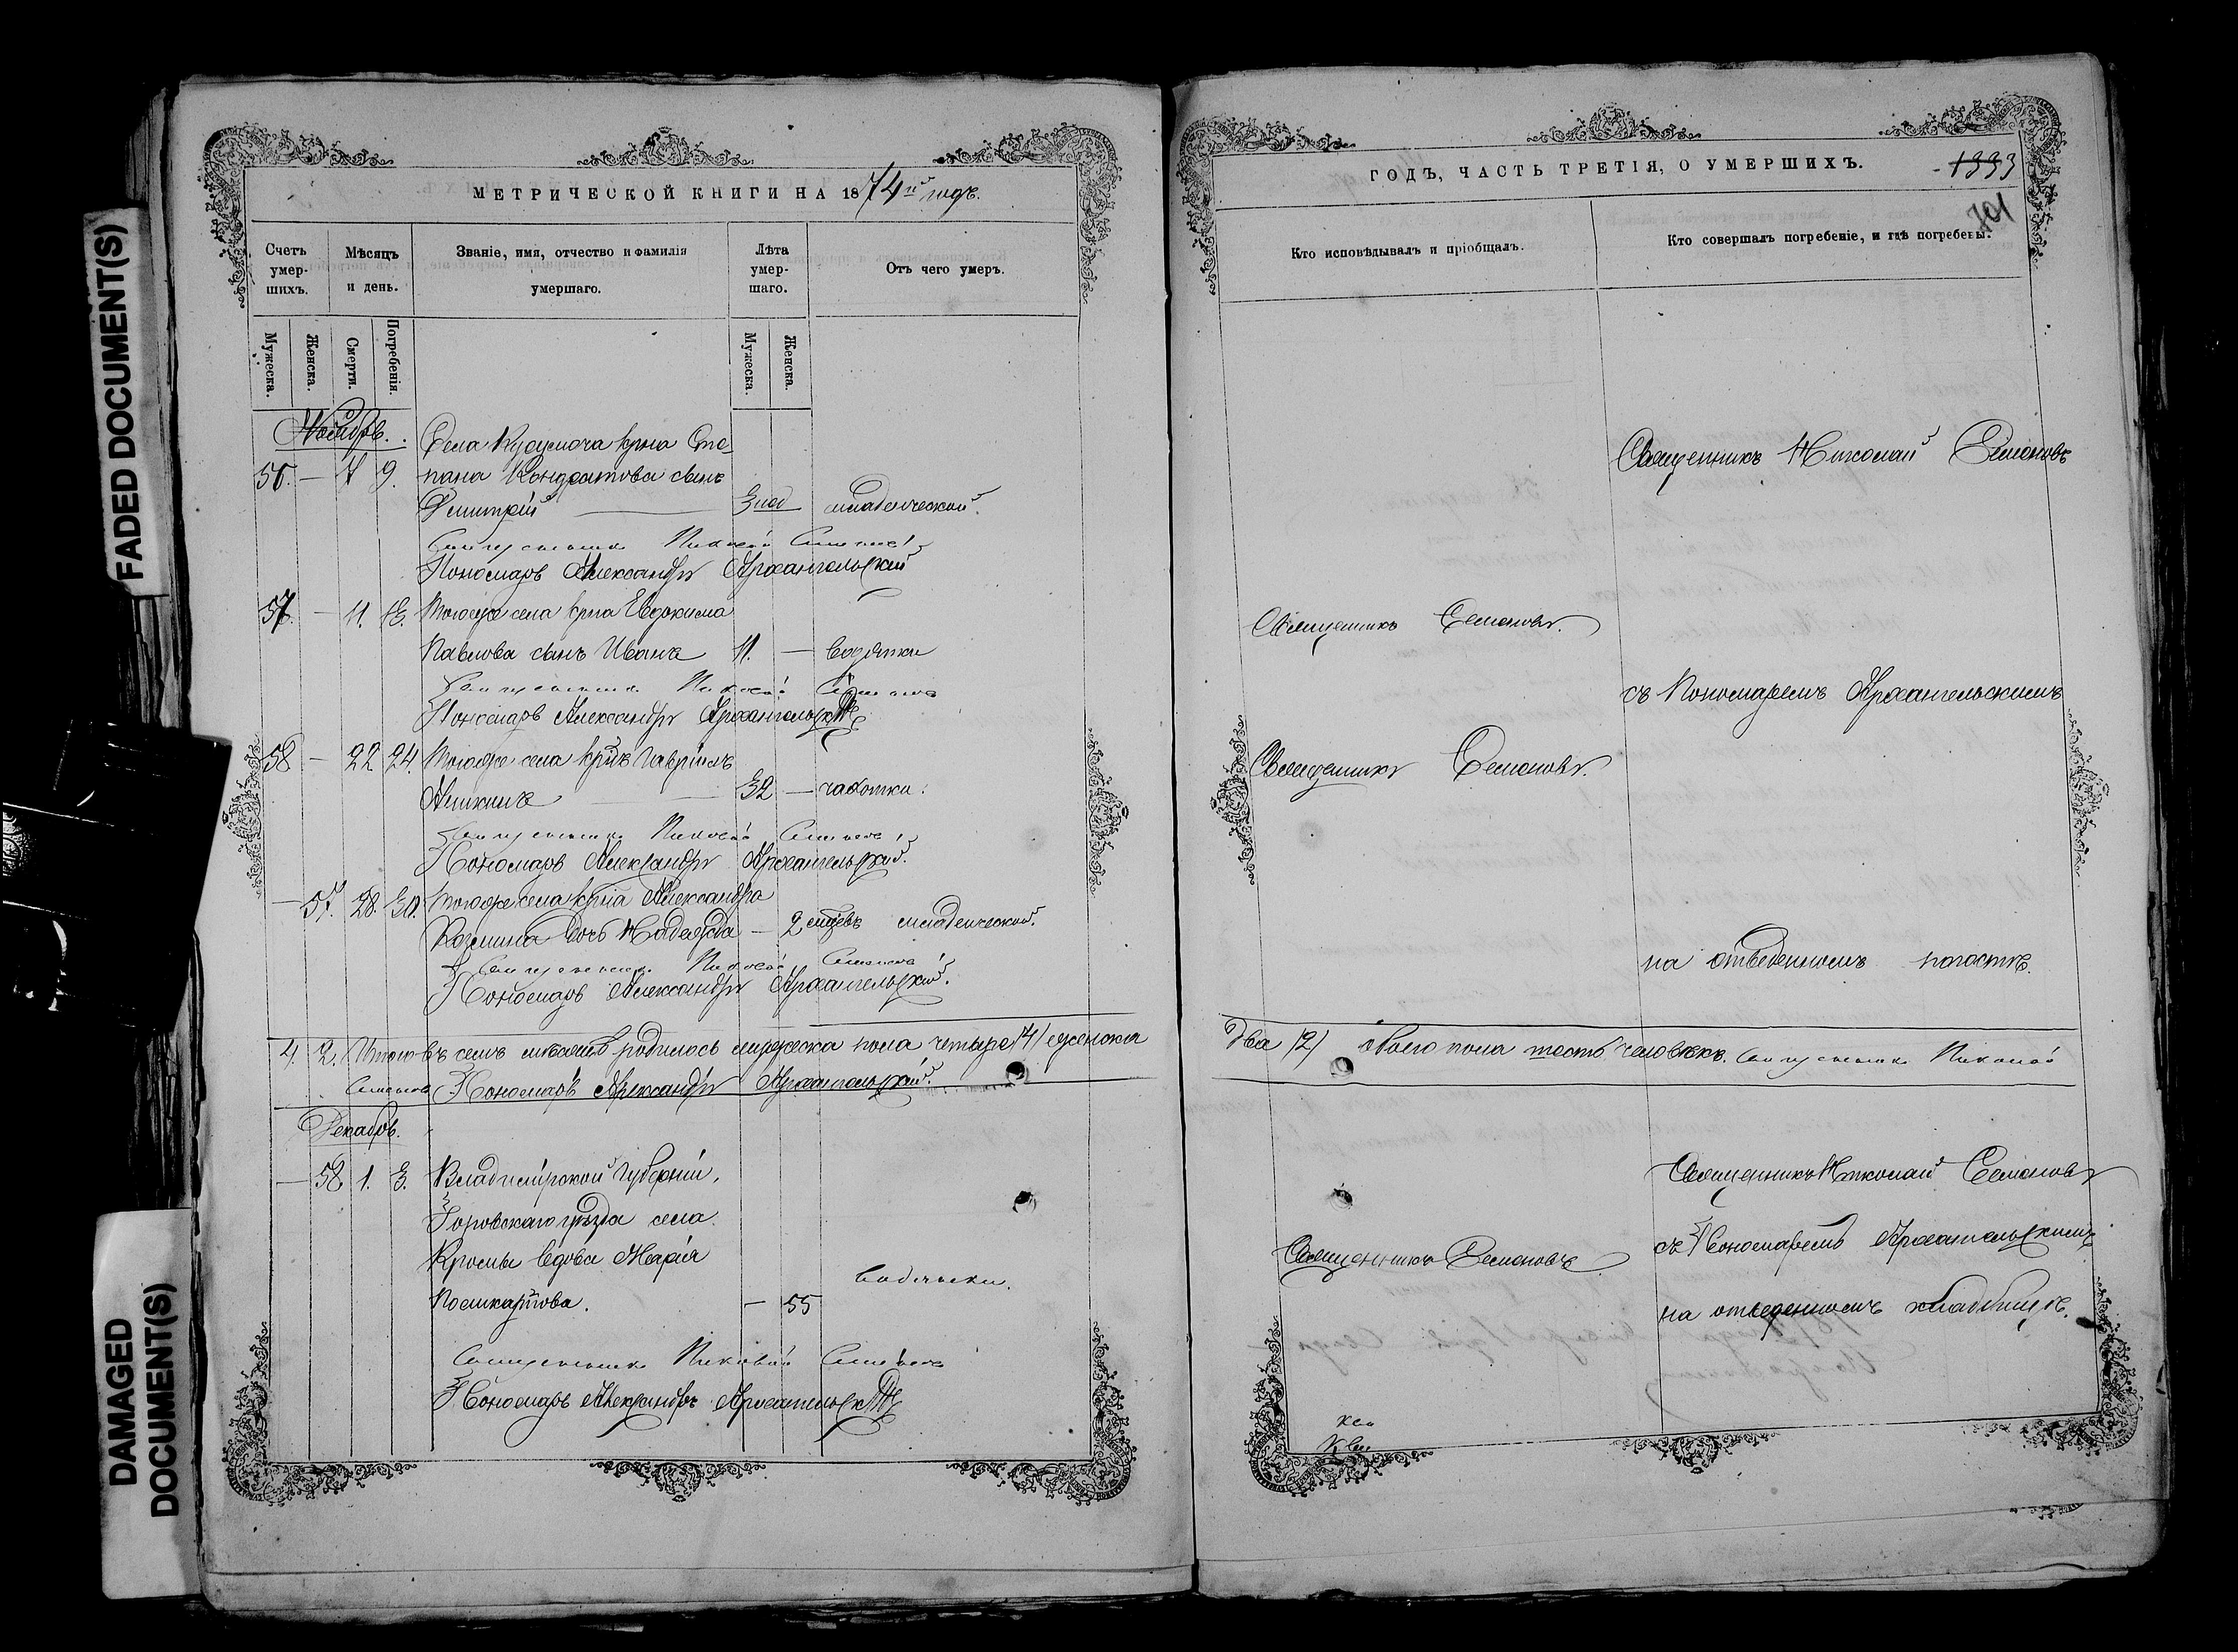 FADED DOCUMENT(S)
DAMAGED
DOCUMENT(S)
МЕТРИЧЕСКОЙ КНИГИ НА 1874й годъ.
Счетъ умер-шихъ.
Мѣсяцъ и день.
Званіе, имя, отчество и фамилія умершаго.
Лѣта умер-шаго.
Отъ чего умеръ.
Мужеска.
Женска.
Смерти.
Погребенія.
Мужеска.
Женска.
Ноябрь.
Села крна Сте-
56. — 7 9. пана Кондратова сынъ
Димитрій 3 нед младенческой.
Священникъ Николай Семеновъ
Пономарь Александръ Архангельскій
57. — 11. 13. Тогоже села крна Евдокима
Павлова сынъ Иванъ 11. — водянки
Священникъ Николай Семеновъ
Пономарь Александръ Архангельскій
58 — 22 24. Тогоже села крнъ Гавріилъ
32 — чахотки.
Священникъ Николай Семеновъ
Пономарь Александръ Архангельскій.
— 57. 28. 30. Тогоже села крна Александра
Козмина дочь Надежда — 2 младенческой.
Священникъ Николай Семеновъ
Пономарь Александръ Архангельскій.
4 2. Итого въ семъ мѣсяцѣ родилось мужеска пола четыре /4/ женска
Семеновъ Пономарь Александръ Архангельскій.
Декабрь.
— 58 1. 3. Владимірской губерніи,
уѣзда села
вдова Марія
— 55 водянки.
Священникъ Николай Семеновъ
Пономарь Александръ Архангельскій
ГОДЪ, ЧАСТЬ ТРЕТІЯ, О УМЕРШИХЪ.
1333
701
Кто исповѣдывалъ и пріобщалъ.
Кто совершалъ погребеніе, и гдѣ погребены.
Священникъ Николай Семеновъ
Священникъ Семеновъ.
съ Пономаремъ Архангельскимъ
Священникъ Семеновъ.
на отведенномъ погостѣ.
два /2/ обоего пола шесть человѣкъ. Священникъ Николай
Священникъ Николай Семеновъ
съ Пономаремъ Архангельскимъ
Священникъ Семеновъ
на отведенномъ кладбищѣ.